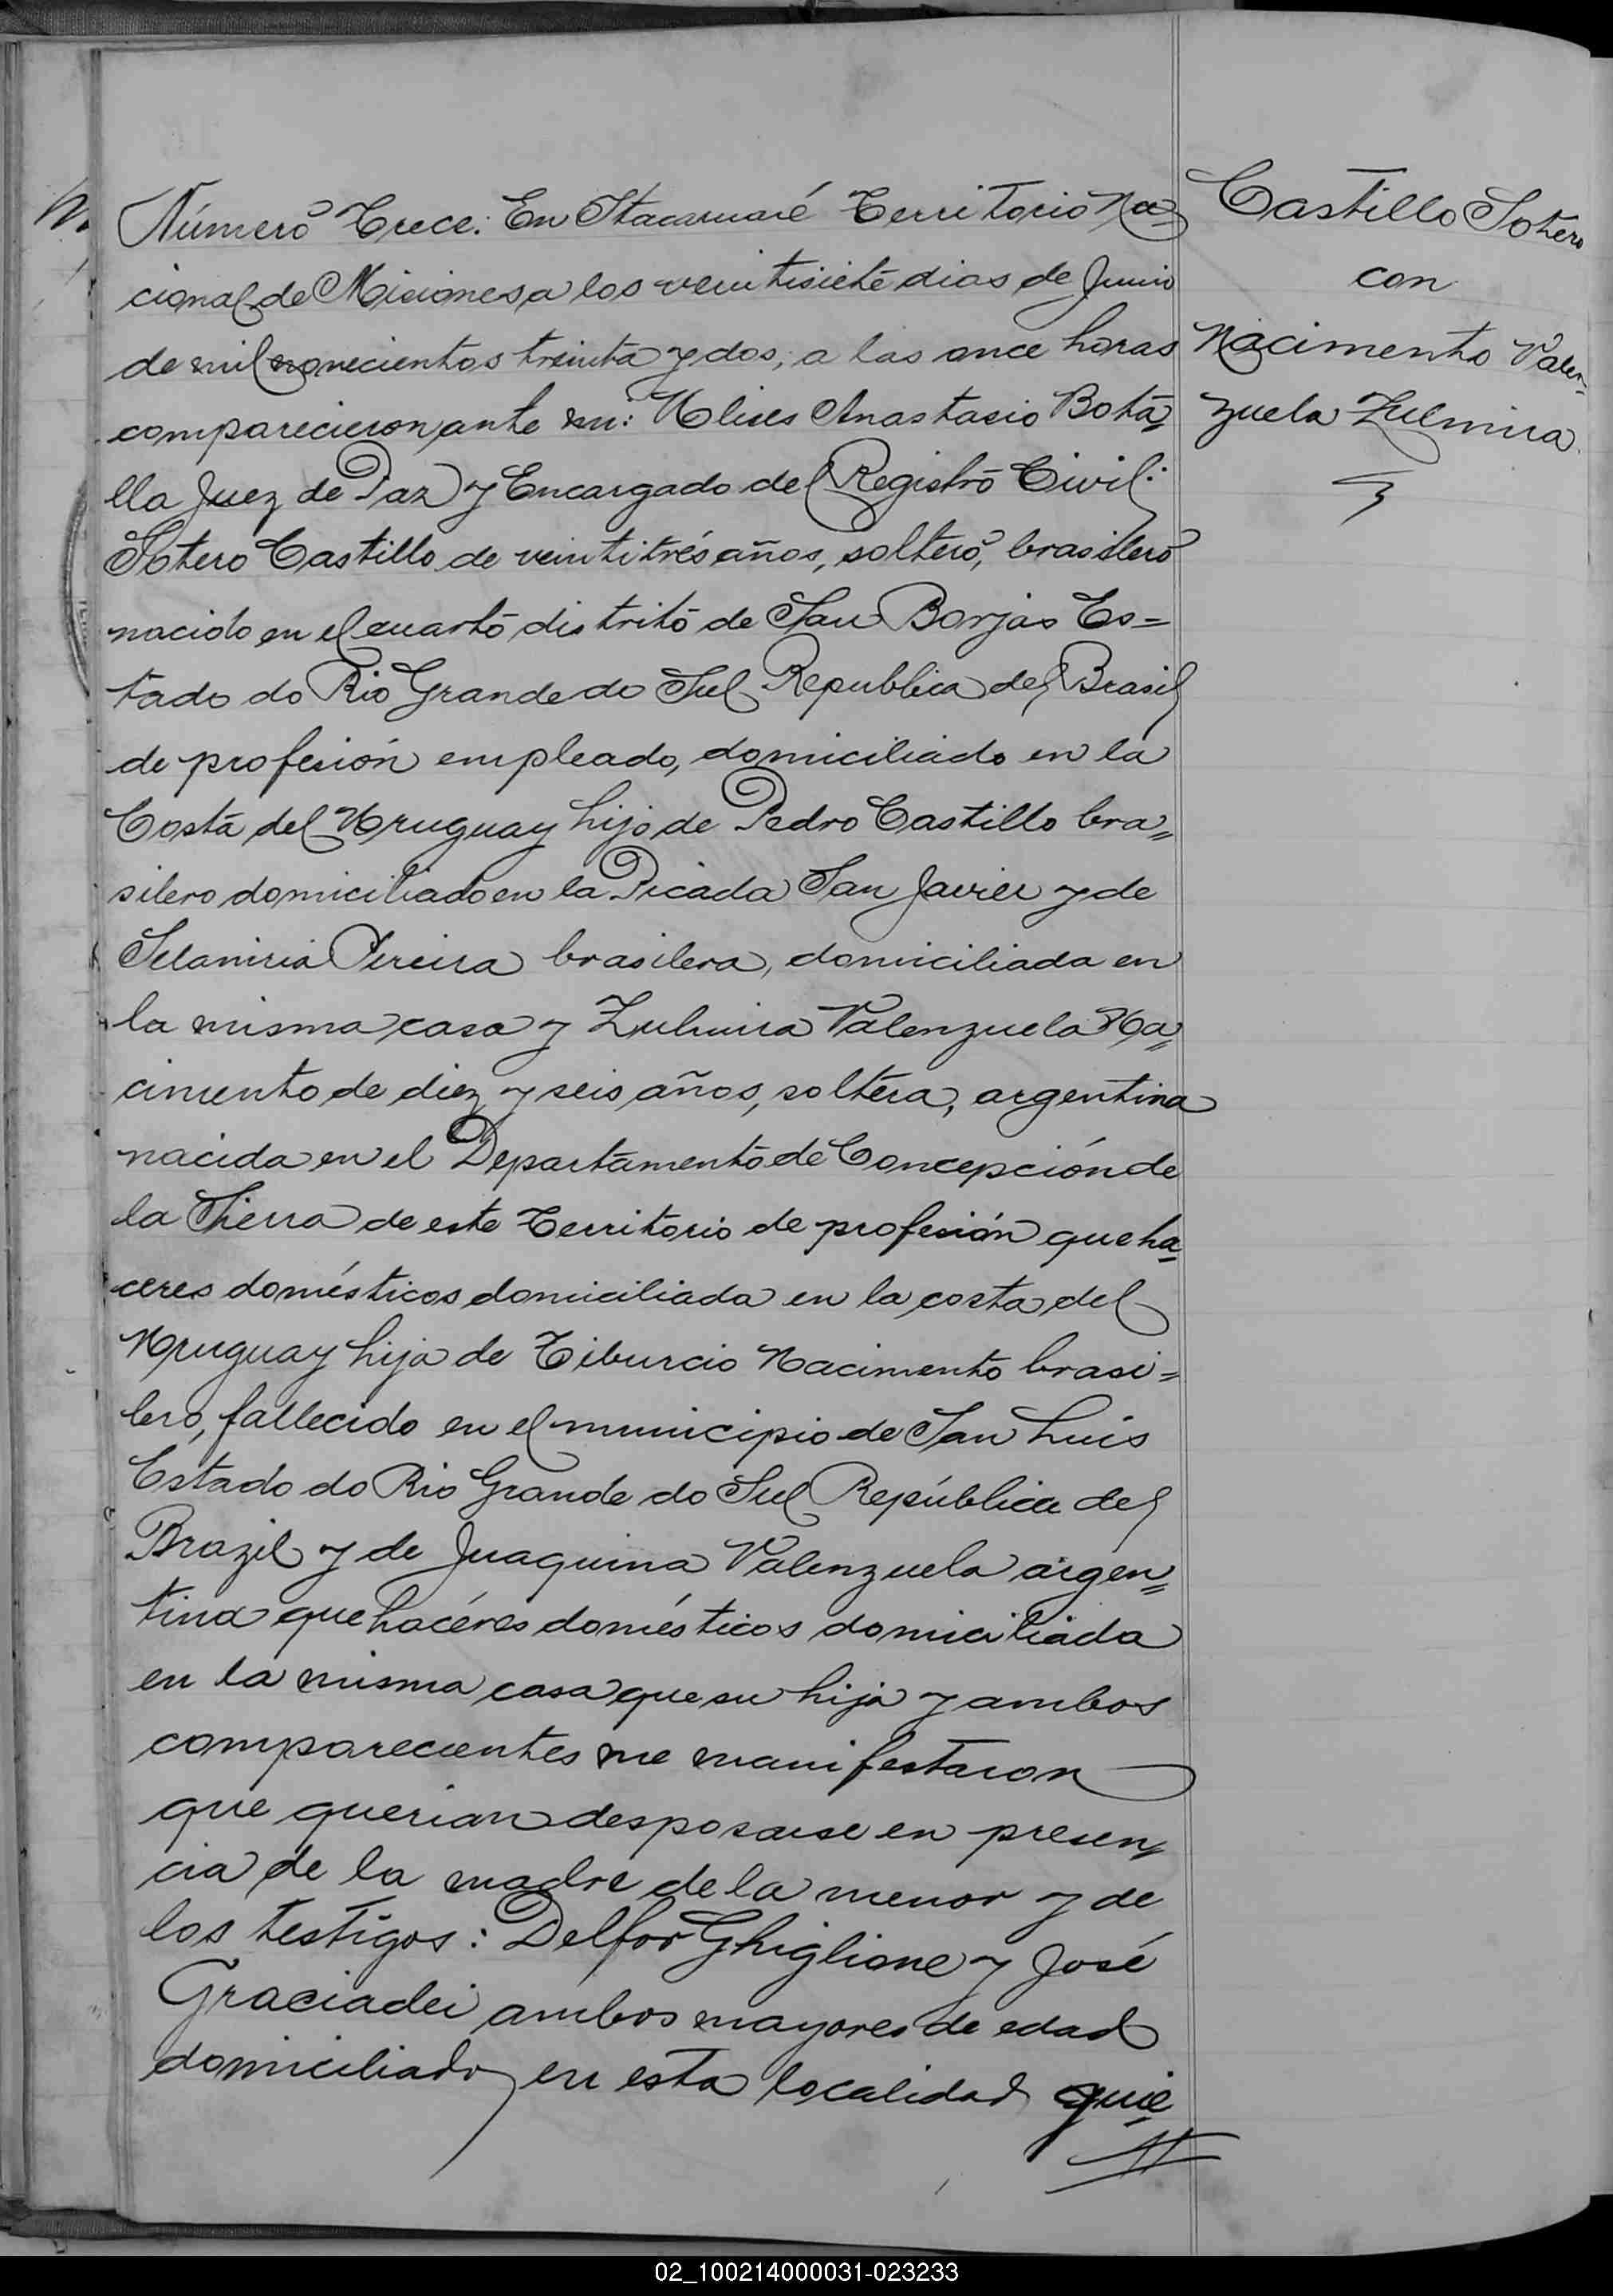 Número Trece: En Itacaruaré Territorio Na=
cional de Misiones a los veintisiete dias de Junio
de mil novecientos treinta y dos, a las once horas
comparecieron ante mi: Ulises Anastasio Bota=
lla Juez de Paz y Encargado del Registro Civil:
Sotero Castillo de veintitrés años, soltero, brasilero
nacido en el cuarto distrito de San Borjas Es=
tado do Rio Grande do Sul Republica del Brasil
de profesión empleado, domiciliado en la
Costa del Uruguay hijo de Pedro Castillo bra=
silero domiciliado en la Picada San Javier y de
Pereira brasilera, domiciliada en
la misma casa y Zulmira Valenzuela Na=
cimento de diez y seis años, soltera, argentina
nacida en el Departamento de Concepción de
la Sierra de este Territorio de profesión queha=
ceres domésticos domiciliada en la costa del
Uruguay hija de Tiburcio Nacimento brasi=
lero, fallecido en el municipio de San Luis
Estado do Rio Grande do Sul República del
Brazil y de Juaquina Valenzuela argen=
tina quehacéres domésticos domiciliada
en la misma casa que su hija y ambos
comparecientes me manifestaron
que querian desposarse en presen=
cia de la madre de la menor y de
los testigos: Delfor Ghiglione y José
Graciadei ambos mayores de edad
domiciliado en esta localidad quie=
Castillo Sotero
con
Nacimento Valen=
zuela Zulmira
02_100214000031-023233